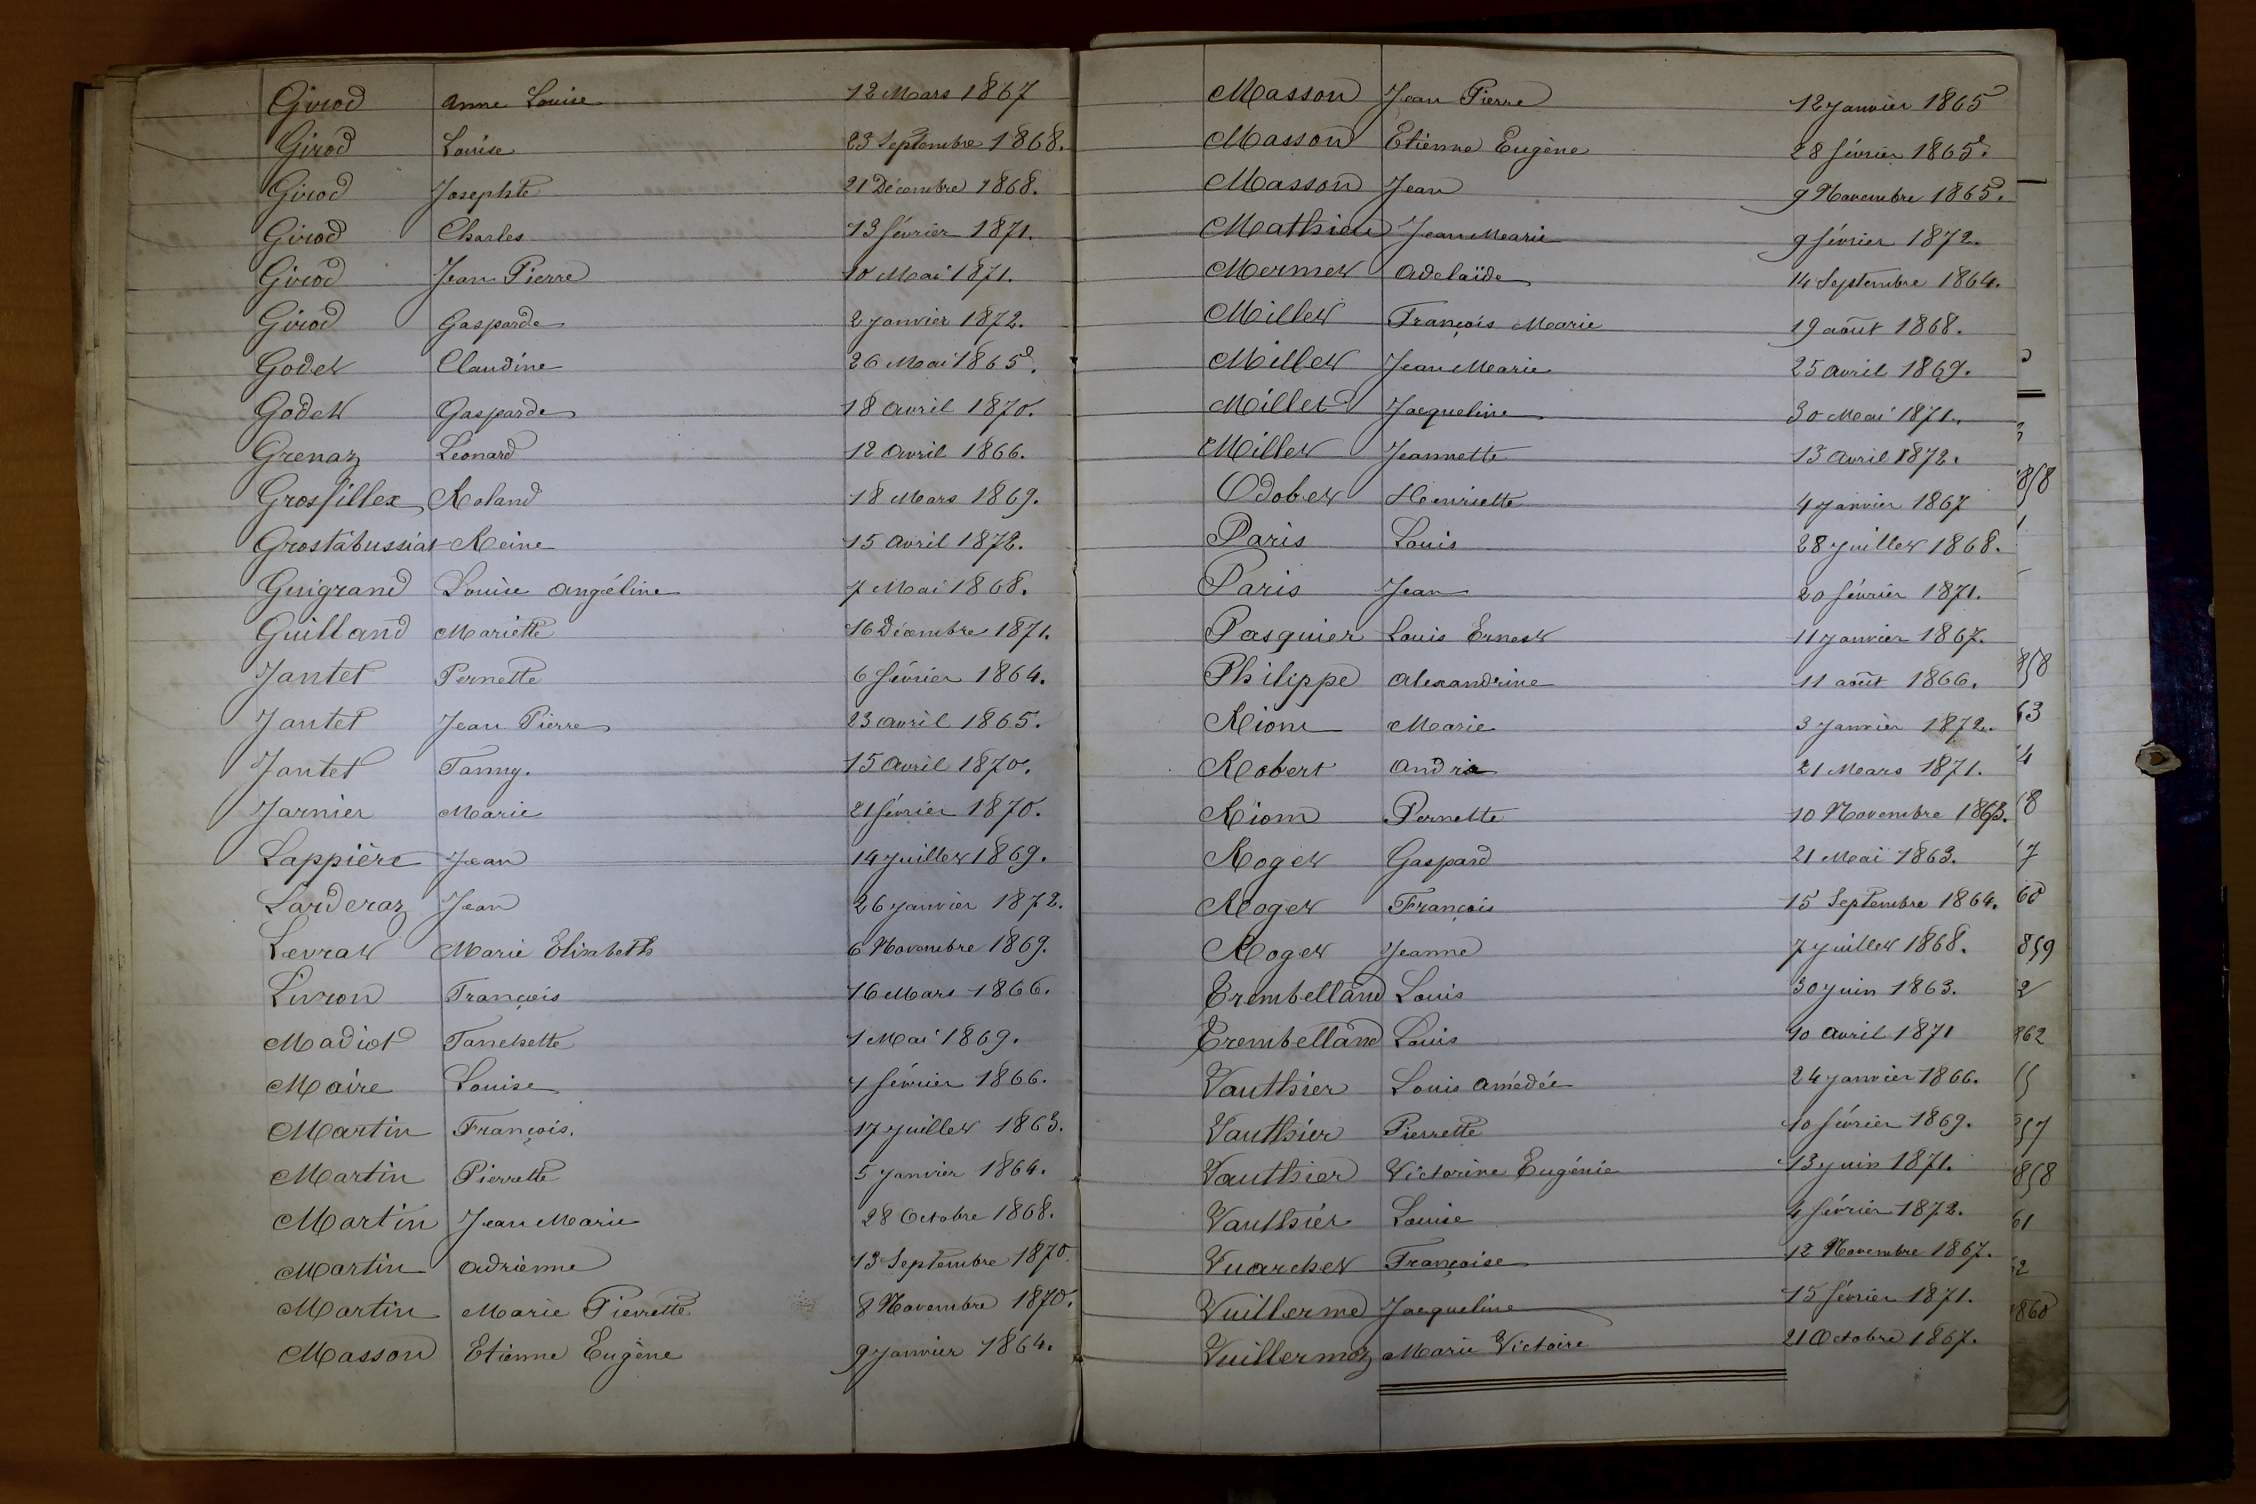 Girod Anne Louise 12 Mars 1867
Girod Louise 23 Septembre 1868.
Girod Josephte 21 Décembre 1868.
Girod Charles 13 février 1871.
Girod Jean Pierre 10 Mai 1871.
Girod Gasparde 2 janvier 1872.
Godet Claudine 26 Mai 1865.
Godet Gasparde 18 avril 1870.
Grenaz Léonard 12 avril 1866.
Grosfillex Roland 18 Mars 1869.
Grostabussiat Reine 15 avril 1872.
Guigrand Louise Angéline 7 Mai 1868.
Guilland Mariette 16 Décembre 1871.
Jantet Pernette 6 février 1864.
Jantet Jean Pierre 23 avril 1865.
Jantet Fanny. 15 avril 1870.
Jarnier Marie 21 février 1870.
Lappière Jean 14 juillet 1869.
Larderaz Jean 26 janvier 1872.
Levrat Marie Elisabeth 6 Novembre 1869.
Livron François 16 Mars 1866.
Madiot Fanchette 1 Mai 1869.
Maire Louise 4 février 1866.
Martin François. 17 juillet 1863.
Martin Pierrette 5 janvier 1864.
Martin Jean Marie 28 Octobre 1868.
Martin Adrienne 13 Septembre 1870
Martin Marie Pierrette 8 Novembre 1870.
Masson Etienne Eugène 9 janvier 1864.
Masson Jean Pierre 12 janvier 1865
Masson Etienne Eugène 28 février 1865.
Masson Jean 9 Novembre 1865.
Mathieu Jean Marie 9 février 1872.
Mermet Adelaïde 14 Septembre 1864.
Millet François Marie 19 août 1868.
Millet Jean Marie 25 avril 1869.
Millet Jacqueline 30 Mai 1871.
Millet Jeannette 13 avril 1872.
Odobet Henriette 4 janvier 1867
Paris Louis 28 juillet 1868.
Paris Jean 20 février 1871.
Pasquier Louis Ernest 11 janvier 1867.
Philippe Alexandrine 11 août 1866.
Riom Marie 3 janvier 1872.
Robert 21 Mars 1871.
Riom Pernette 10 Novembre 1863.
Roget Gaspard 21 Mai 1863.
Roget François 15 Septembre 1864.
Roget Jeanne 7 juillet 1868.
Trembelland Louis 30 juin 1863.
Trembelland Louis 10 avril 1871
Vauthier Louis Amédée 24 janvier 1866.
Vauthier Pierrette 10 février 1869.
Vauthier Victorine Eugénie 13 juin 1871.
Vauthier Louise 4 février 1872.
Vuarchet Françoise 12 Novembre 1867.
Vuillerme Jacqueline 15 février 1871.
Vuillermoz Marie Victoire 21 Octobre 1867.